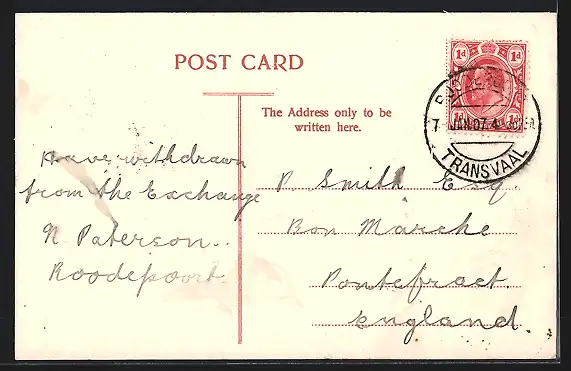 POST CARD
The Address only to be
written here.
1d 1d
1d 1d
7 JAN 07
TRANSVAAL
Have withdrawn
from the Exchange
N Paterson.
Roodepoort.
P Smith Esq.
Bon Marche
Pontefract.
England.